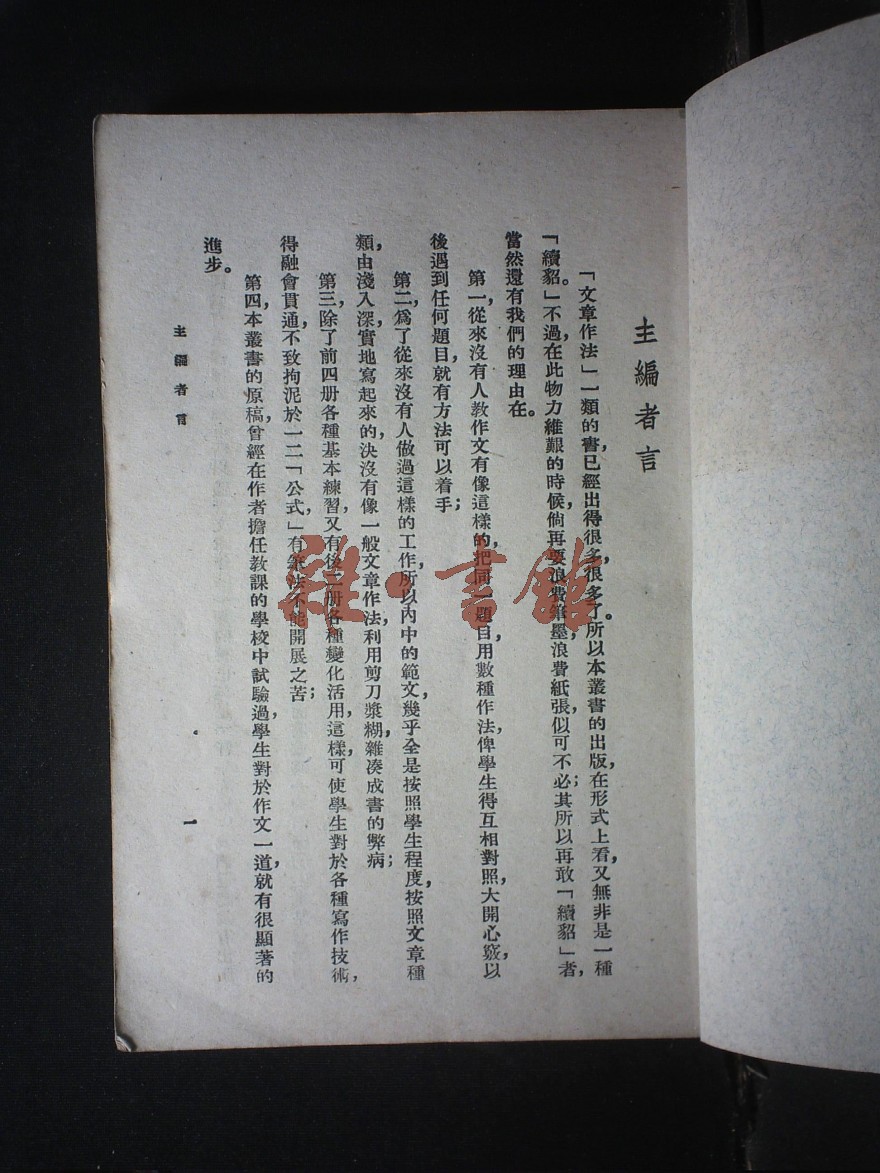 主編者言
「文章作法」一類的書,已經出得很多很多了。所以本叢書的出版,在形式上看,又無非是一種
「續貂。」不過在此物力維艱的時候,倘再要浪費筆墨,浪費紙張,似可不必;其所以再敢「續貂」者,
當然還有我們的理由在。
第一,從來沒有人教作文有像這樣的,把同一題目用數種作法,俾學生得互相對照,大開心竅,以
後遇到任何題目,就有方法可以着手;
第二,爲了從來沒有人做過這樣的工作,所以內中的範文,幾乎全是按照學生程度,按照文章種
類,由淺入深,實地寫起來的,決沒有像一般文章作法利用剪刀漿糊,雜凑成書的弊病;
第三,除了前四册各種基本練習,又有後二册各種變化活用,這樣,可使學生對於各種寫作技術,
得融會貫通,不致拘泥於一二「公式,」有筆法不能開展之苦;
第四,本叢書的原稿,曾經在作者擔任教課的學校中試驗過,學生對於作文一道,就有很顯著的
進步。
主編者言
一
雜·書館